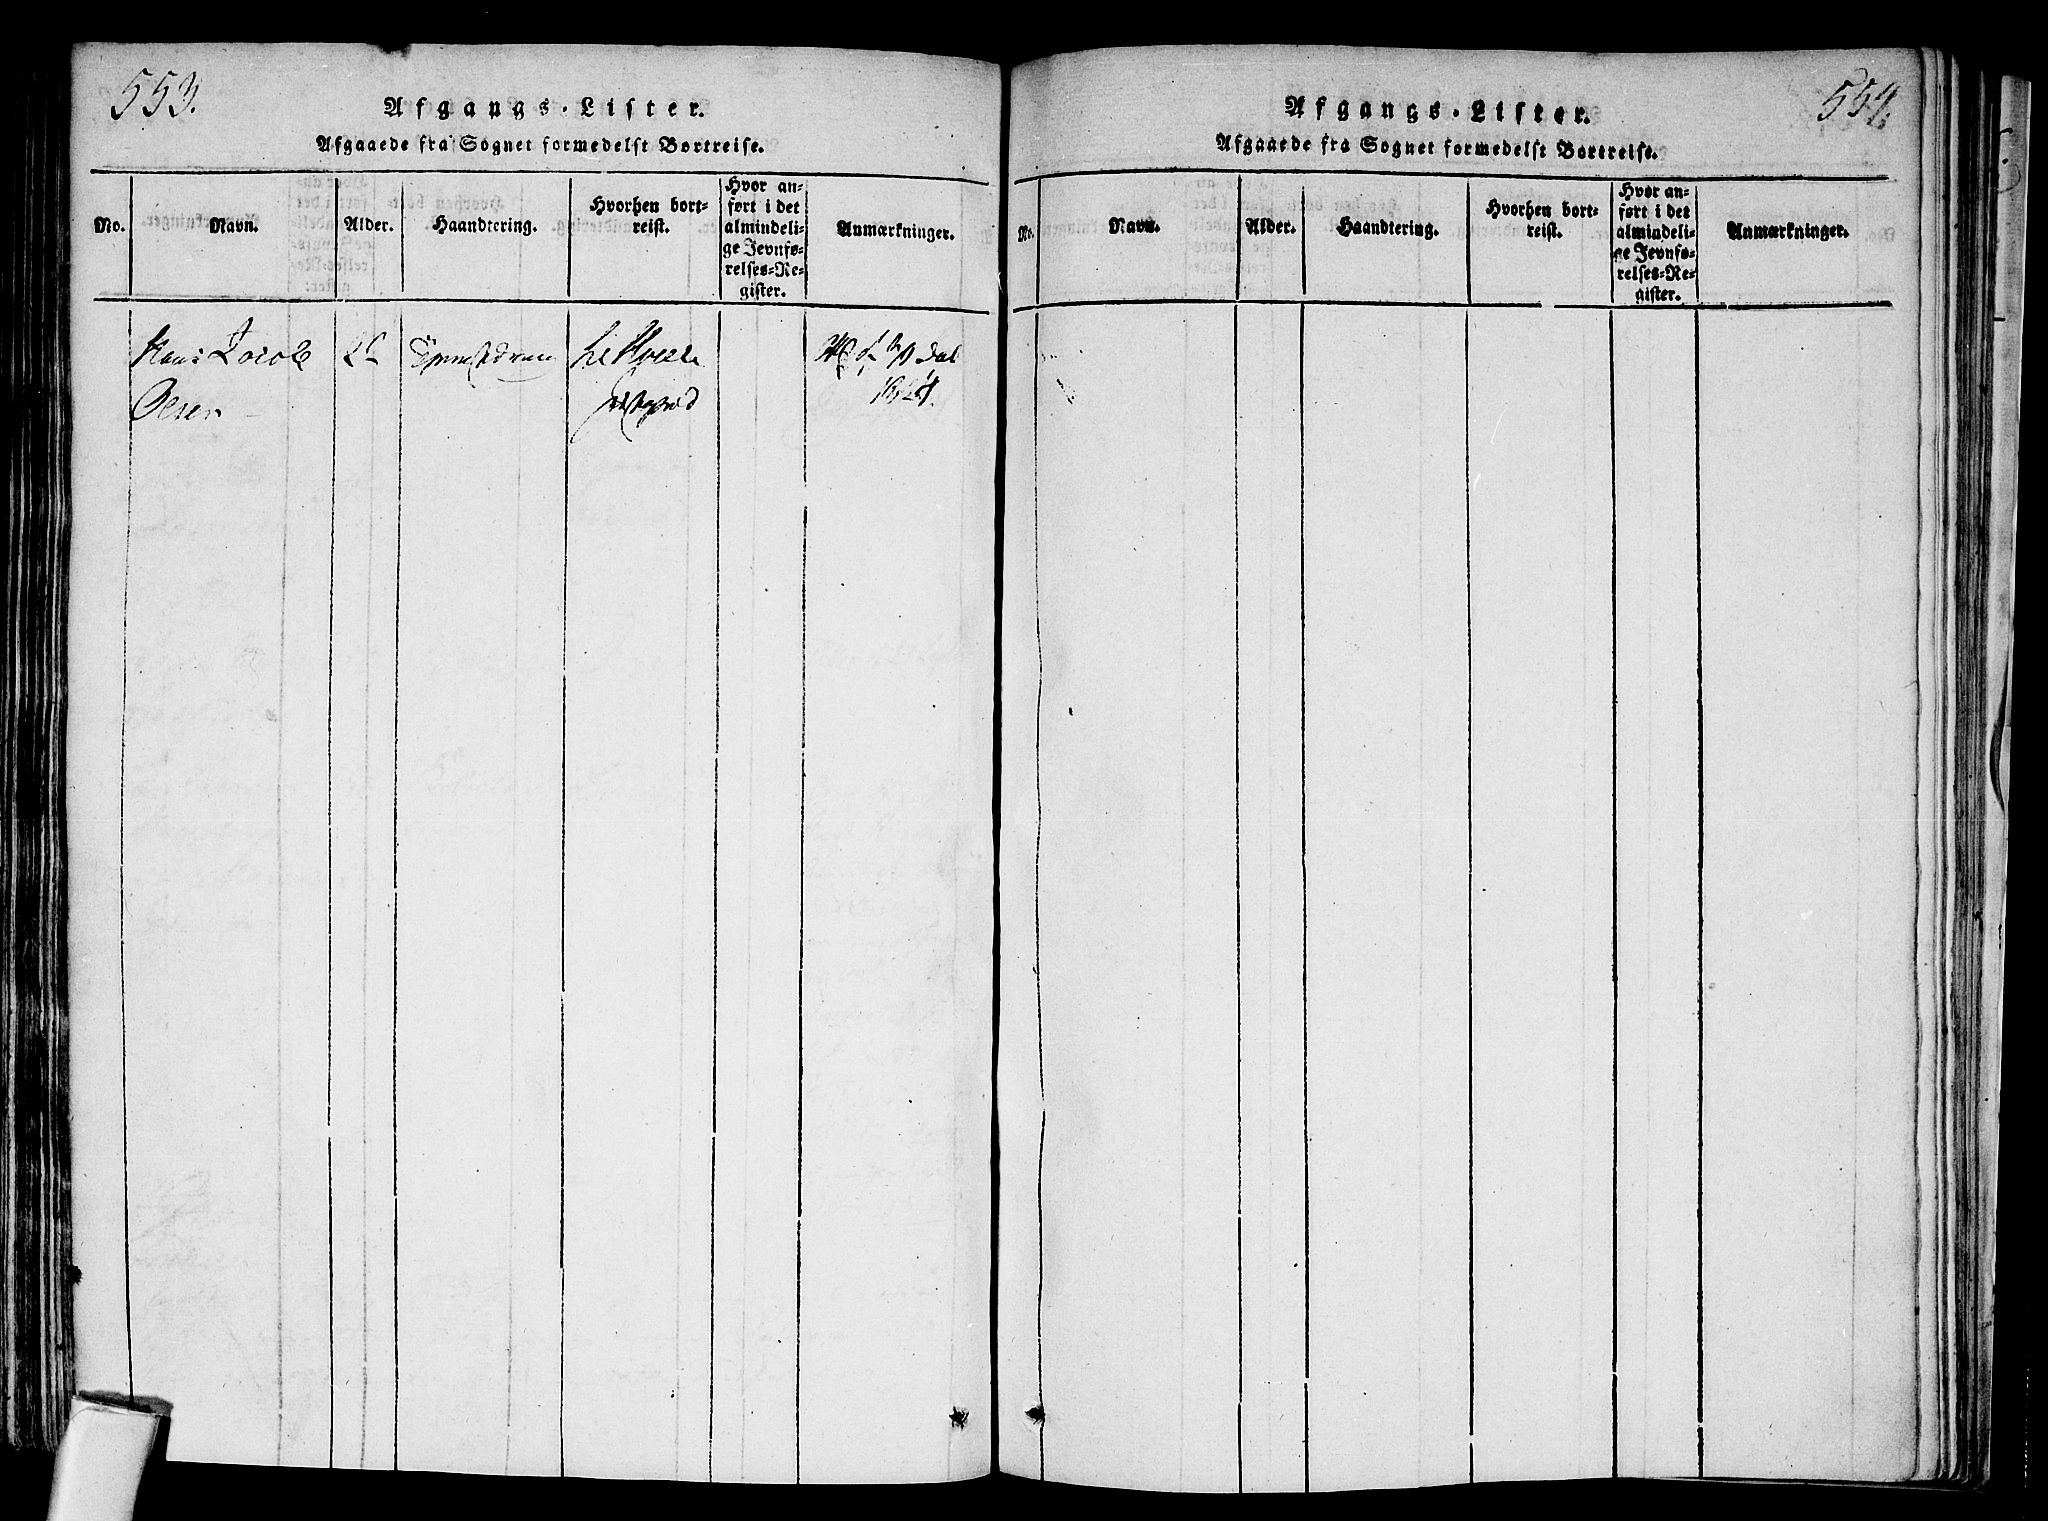 553.
Afgangs-Lister.
Afgaaede fra Sognet formedelst Bortreise.
No.
Navn.
Alder.
Haandtering.
Hvorhen bort-
reist.
Hvor an-
ført i det
almindeli-
ge Jevnfø-
relses-Re-
gister.
Anmærkninger.
Hans Jacob
Olsen
554.
Afgangs-Lister.
Afgaaede fra Sognet formedelst Bortreise.
No.
Navn.
Alder.
Haandtering.
Hvorhen bort-
reist.
Hvor an-
ført i det
almindeli-
ge Jevnfø-
relses-Re-
gister.
Anmærkninger.